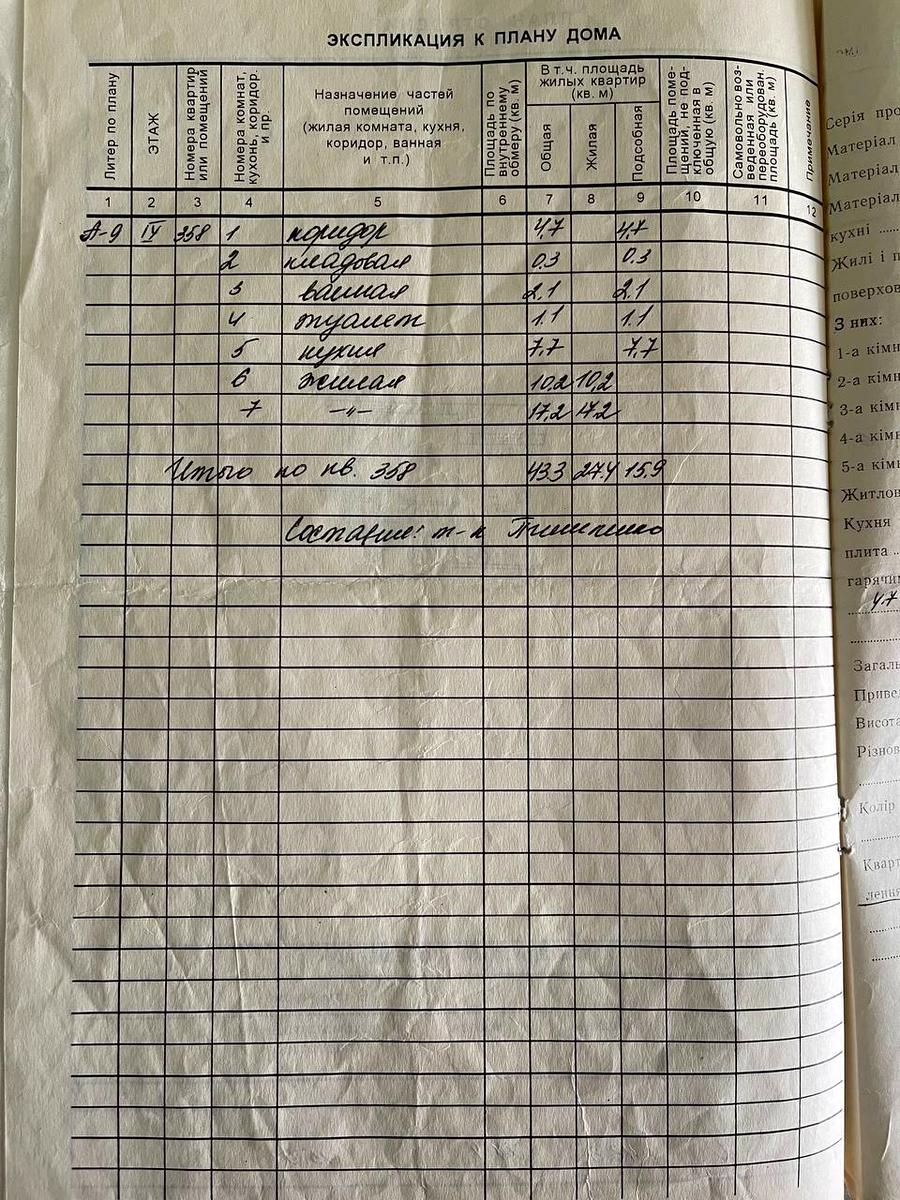 ЭКСПЛИКАЦИЯ К ПЛАНУ ДОМА
Литер по плану
ЭТАЖ
Номера квартир
или помещений
Номера комнат,
кухонь, коридор.
и пр.
Назначение частей
помещений
(жилая комната, кухня,
коридор, ванная
и т.п.)
Площадь по
внутреннему
обмеру (кв. м)
В т.ч. площадь
жилых квартир
(кв. м)
Общая
Жилая
Подсобная
Площадь поме-
щений, не под-
ключенная в
общую (кв. м)
Самовольно воз-
веденная или
переоборудован.
площадь (кв. м)
Примечание
1 2 3 4 5 6 7 8 9 10 11 12
А-9 IV 358 1 коридор 4,7 4,7
2 кладовая 0.3 0.3
3 ванная 2.1 2.1
4 туалет 1.1 1.1
5 кухня 7,7 7,7
6 жилая 10,2 10,2
7 -"- 17,2 17.2
Итого по кв. 358 43.3 27.4 15.9
Составил: т-к
Серія про
Матеріал
Матеріал
Матеріал
кухні ......
Жилі і п
поверхов
З них:
1-а кімн
2-а кімн
3-а кімн
4-а кімн
5-а кімн
Житлов
Кухня
плита ..
гарячим
4.7
Загаль
Привед
Висота
Різнов
Колір
Кварт
лення